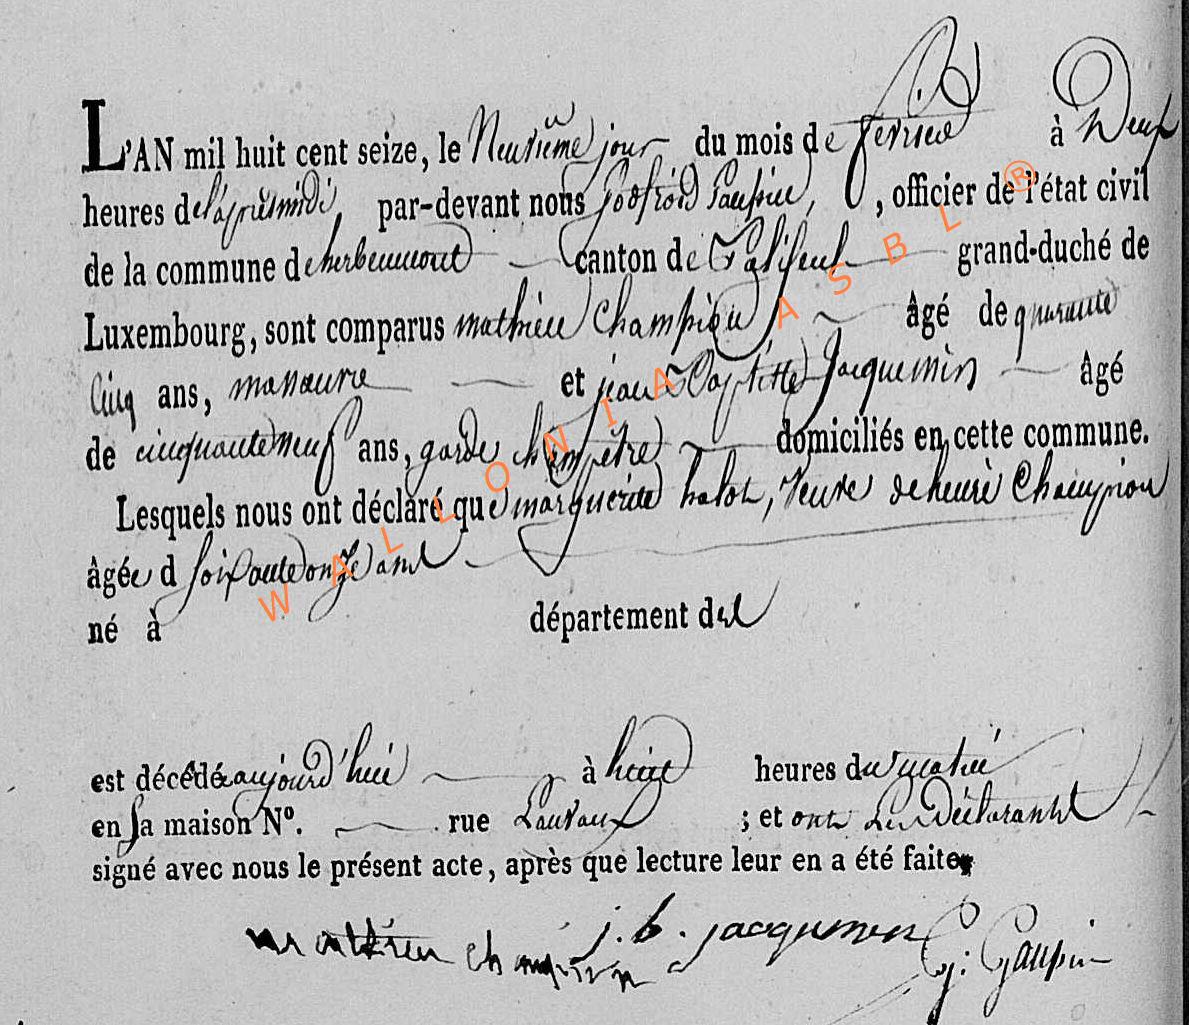 L'AN mil huit cent seize, le Neuvieme jour du mois de fevrier à Deux
heures de l'après midi, par-devant nous godfroid Gaupin, officier de l'état civil
de la commune d'herbeumont canton de Paliseul grand-duché de
Luxembourg, sont comparus mathieu Champion âgé de quarante
Cinq ans, manœuvre et jean Baptiste Jacquemin âgé
de cinquante neuf ans, garde champêtre domiciliés en cette commune.
Lesquels nous ont déclaré que marguerite halot, veuve de henri Champion
âgée d soixante onze ans
né à département del
est décédée aujourd'hui à huit heures du matin
en sa maison N°. rue Lauvaux ; et ont Les Déclarants
signé avec nous le présent acte, après que lecture leur en a été faite
mathieu champion j. b. jacquemin G: Gaupin
WALLONIA ASBL ®